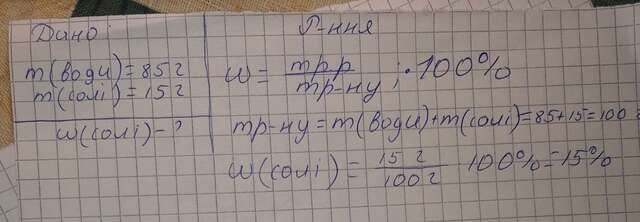 Дано:
m(води)=85г
m(солі)=15г
w(солі)-?
Р-ння
w= mр.р / mр-ну ; ·100%
mр-ну=m(води)+m(солі)=85+15=100г
w(солі)= 15г / 100г 100%=15%